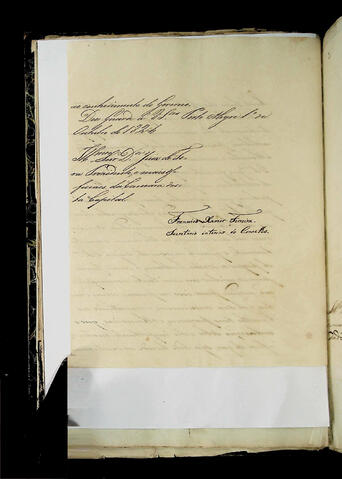 ao conhecimento do Governo.
Deos Guarde a VS.ᵃˢ Porto Alegre 1º de
Outubro de 1824
Snr.ᵉˢ Juiz de Fo-
ra Presidente, e mais Of-
ficiaes da Camara des-
ta Capital.
Francisco Xavier Ferreira
Secretario interino do Conselho.